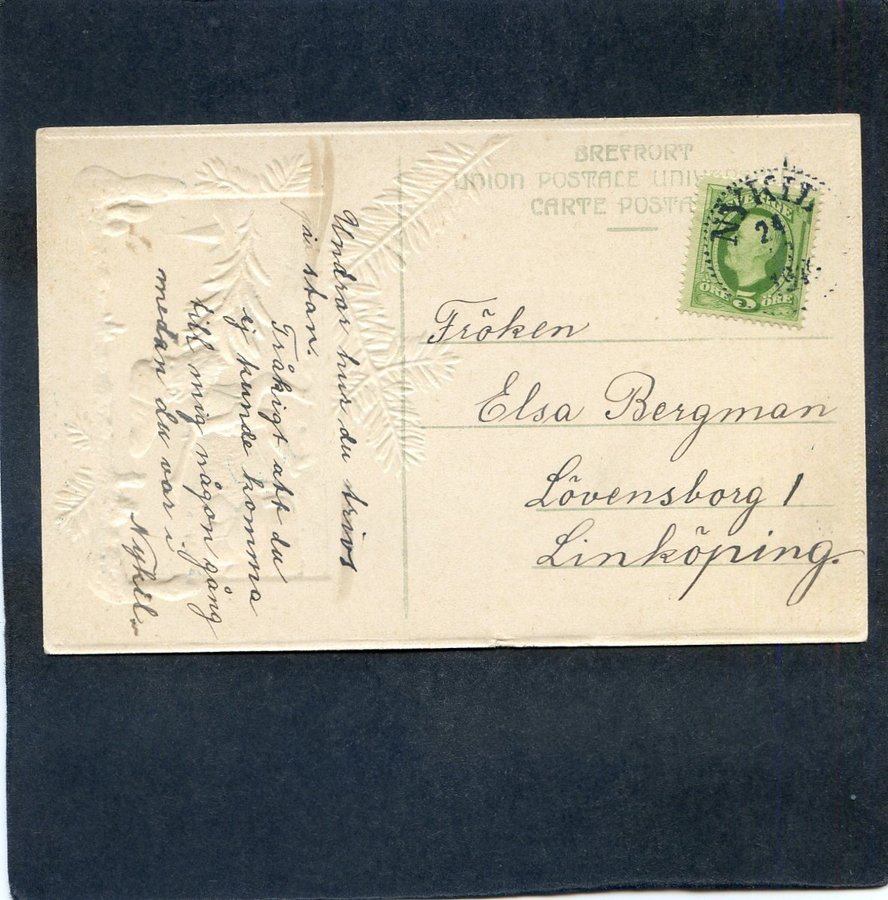 BREFKORT
UNION POSTALE UNIV
CARTE POSTA
NYKIL
24
ÖRE 5 ÖRE
Fröken
Elsa Bergman
Lövensborg 1
Linköping.
Undrar hur du trivs
i stan.
Tråkigt att du
ej kunde komma
till mig någon gång
medan du var i
Nykil.